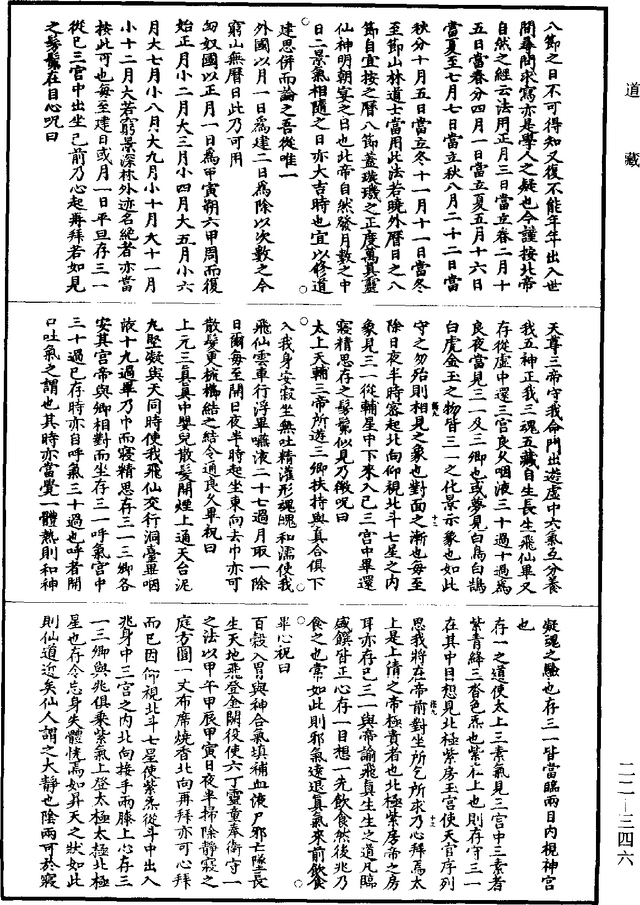 道藏
八節之日不可得知又復不能年年出入世
間尋問求寫亦是學人之疑也今謹按北帝
自然之經云法用正月三日當立春二月十
五日當春分四月一日當立夏五月十六日
當夏至七月七日當立秋八月二十二日當
秋分十月五日當立冬十一月十一日當冬
至節山林道士當用此法若曉外曆日之八
節自宜按之曆八節蓋璇璣之正度萬真靈
仙神明朝宴之日也北帝自然發月數之中
日二景氣相隨之日亦大吉時也宜以修道
建思併而論之吾從唯一
外國以月一日為建二日為除以次數之今
窮山無曆日此乃可用
匈奴國以正月一日為甲寅朔六甲周而復
始正月小二月大三月小四月大五月小六
月大七月小八月大九月小十月大十一月
小十二月大若窮景深林外迹名絶者亦當
按此可也每至建日或月一日平旦存三一
從己三宮中出坐己前乃心起再拜若如見
之髣髴在目心呪曰
天尊三帝守我命門出遊虛中六氣互分養
我五神正我三魂五藏自生長生飛仙畢又
存從虛中還三宮良久咽液三十過十過為
良夜當見三一及三卿也或夢見白鳥白鵠
白虎金玉之物皆三一之化景示象也如此
守之勿殆則相見之象也對面之漸也每至
除日夜半時密起北向仰視北斗七星之内
象見三一從輔星中下來入己三宮中畢還
寢精思存之髣髴似見乃微呪曰
太上天輔三帝所遊三卿扶持與真合俱下
入我身安寂坐無吐精灌形魂魄和濡使我
飛仙雲車行浮畢嚥液二十七過月取一除
日爾每至開日夜半時起坐東向去巾亦可
散髮更梳櫛結之結令通良久畢祝曰
上元三真真中嬰兒散髮開煙上通天台泥
丸堅凝與天同時使我飛仙交行洞臺畢咽
液十九過畢乃巾而寢精思存三一三卿各
安其宮帝與卿相對而坐存三一呼氣宮中
三十過已存時亦自呼氣三十過也呼者開
口吐氣之謂也其時亦當覺一體熱則和神
凝魂之驗也存三一皆當臨兩目内視神宮
也
存一之道使太上三素氣見三宮中三素者
紫青絳三沓色炁也紫在上也則存守三一
在其中目想見北極紫房玉宮使天官序列
思我將在帝前對坐所乞所求乃心拜為太
上是上清之帝極貴者也北極紫房帝之房
耳亦存己三一與帝論飛真生生之道凡臨
盛饌皆正心存一日想一先飲食然後兆乃
食之也常如此則邪氣遠退真氣來前飲食
畢心祝曰
百穀入胃與神合氣填補血液尸邪亡墜長
生天地飛登金闕役使六丁靈童奉衛守一
之法以甲午甲辰甲寅日夜半掃除靜寢之
庭方圓一丈布席燒香北向再拜亦可心拜
而已因仰視北斗七星使紫炁從斗中出入
兆身中三宮之内北向接手兩膝上心存三
一三卿與兆俱乘紫氣上登太極太極北極
星也存令忘身失體恍焉如昇天之狀如此
則仙道近矣仙人謂之大靜也陰雨可於寢
二二—三四六